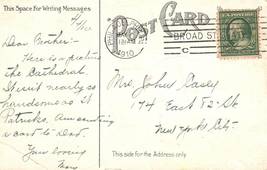 This Space for Writing Messages
POST CARD
1910
BROAD ST.
C
4/10
Dear Mother:-
Here is a picture
the Cathedral.
It is not nearly as
handsome as St
Patricks. Am sending
a card to Dad.
Your loving
Mrs. John Casey
174 East 72 St
New York City.
This side for the Address only